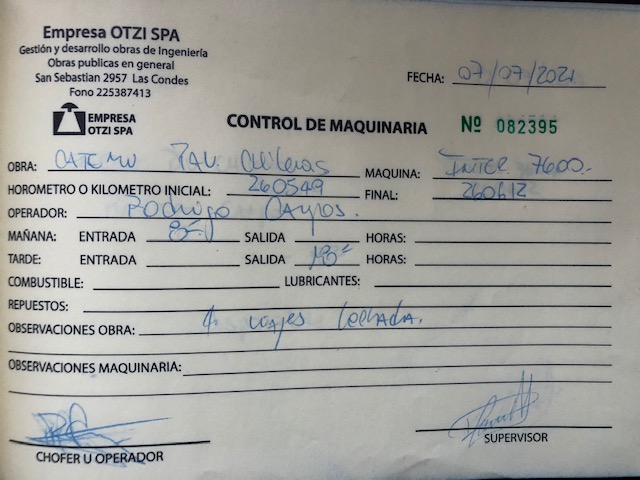 Empresa OTZI SPA
Gestión y desarrollo obras de Ingeniería
Obras publicas en general
San Sebastian 2957 Las Condes
Fono 225387413
FECHA: 07/07/2021
EMPRESA
OTZI SPA
CONTROL DE MAQUINARIA Nº 082395
OBRA: MAQUINA: INTER 7600.-
HOROMETRO O KILOMETRO INICIAL: 260549 FINAL: 260612
OPERADOR: Rodrigo
MAÑANA: ENTRADA SALIDA HORAS:
TARDE: ENTRADA SALIDA HORAS:
COMBUSTIBLE: LUBRICANTES:
REPUESTOS:
OBSERVACIONES OBRA: 4 viajes
OBSERVACIONES MAQUINARIA:
CHOFER U OPERADOR
SUPERVISOR